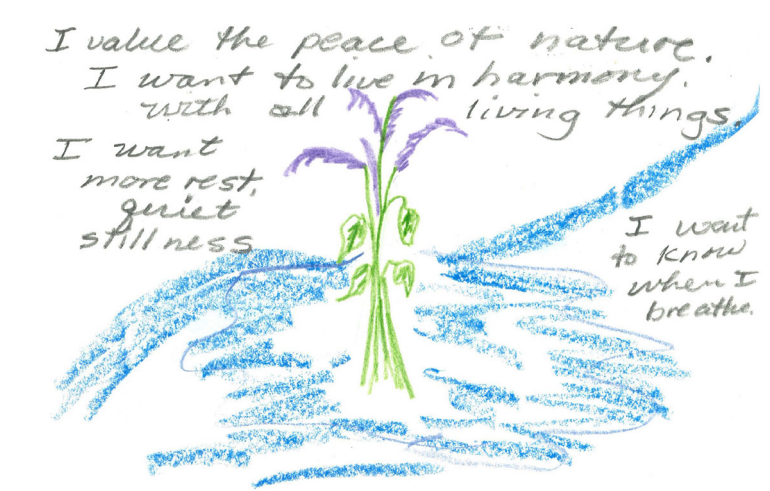 I value the peace of nature.
I want to live in harmony.
with all living things.
I want
more rest,
quiet
stillness
I want
to know
when I
breathe.